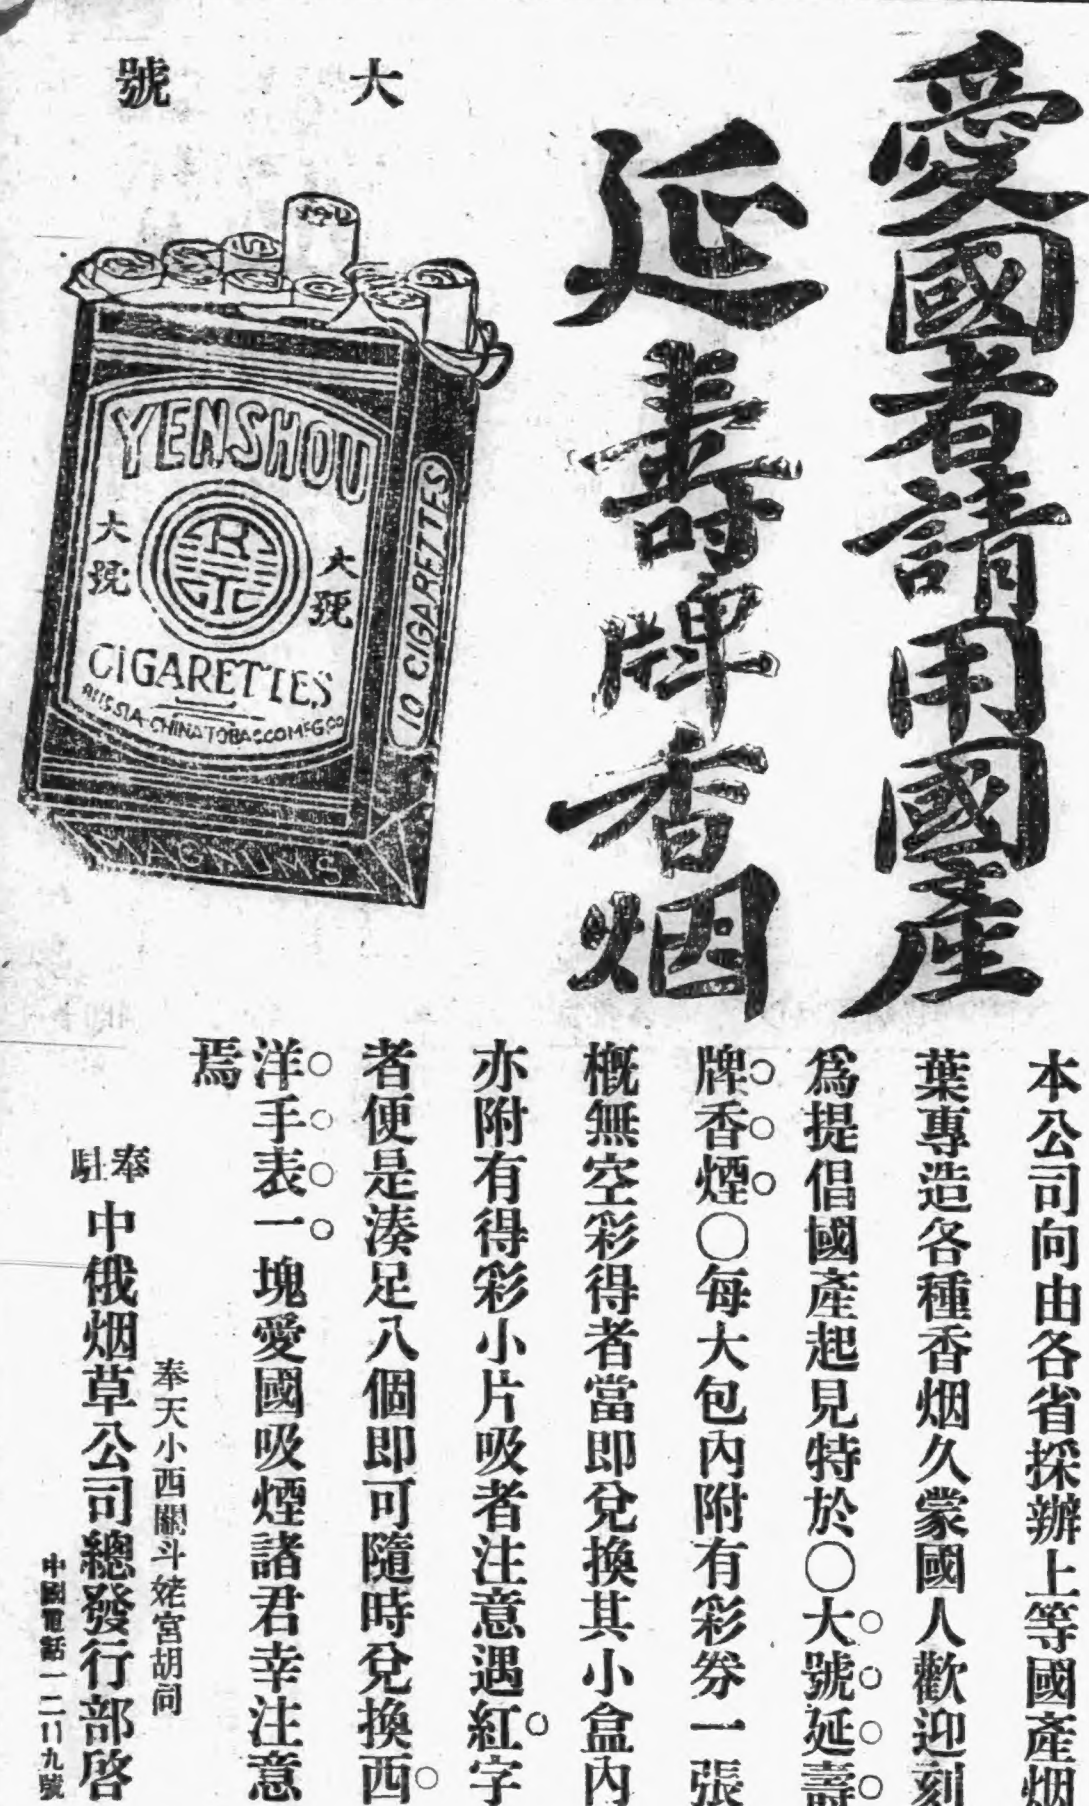 愛國者請用國產
延壽牌香烟
大號
YENSHOU
大號
大號
R
T
CIGARETTES
RUSSIA-CHINA TOBACCO MFG.CO
10 CIGARETTES
MAGNUMS
本公司向由各省採辦上等國產烟
葉專造各種香烟久蒙國人歡迎刻
爲提倡國產起見特於〇大號延壽
牌香煙〇每大包內附有彩券一張
概無空彩得者當即兌換其小盒內
亦附有得彩小片吸者注意遇紅字
者便是湊足八個即可隨時兌換西
洋手表一塊愛國吸煙諸君幸注意
焉
奉天小西關斗姥宮胡同
奉駐
中俄烟草公司總發行部啓
中國電話一二11九號